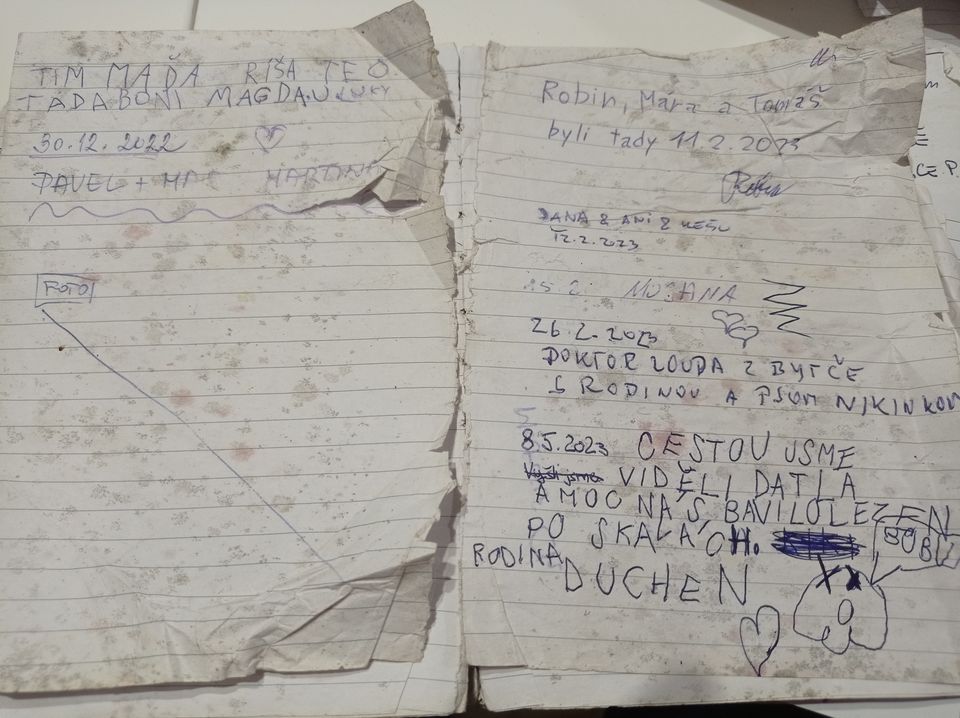 TIM MAĎA RÍŠA TEO
TADA BONI MAGDA
30.12.2022
PAVEL + MARTINA
FOTO!
Robin, Mára a Tobiáš
byli tady 11.2.2023
Robin
DANA & ANI &
12.2.2023
26.2.2023
DOKTOR LOUDA Z BYTČE
S RODINOU A PSOM NIKINKOM
8.5.2023 CESTOU JSME
VIDĚLI DATLA
A MOC NÁS BAVILO LEZEN
PO SKALÁCH.
RODINA DUCHEN
BUBU